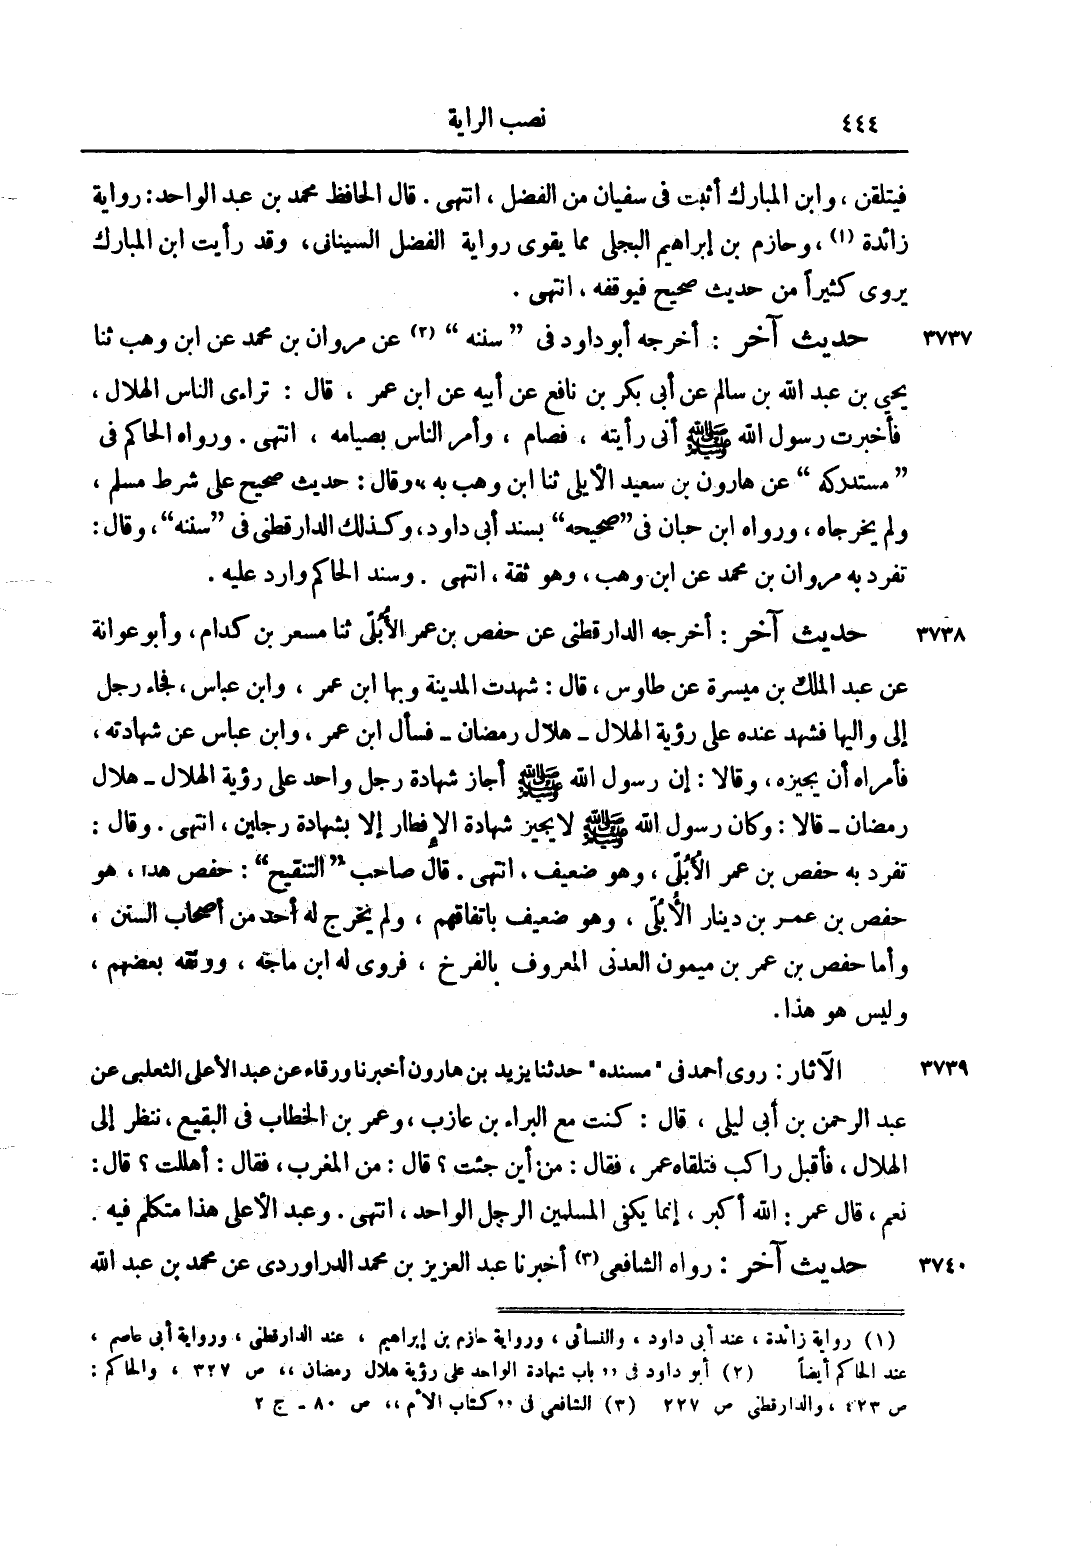 ٤٤٤ نصب الراية
فيتلقن ، وابن المبارك أثبت فى سفيان من الفضل ، انتهى . قال الحافظ محمد بن عبد الواحد : رواية
زائدة (١) ، وحازم بن إبراهيم البجلى مما يقوى رواية الفضل السينانى ، وقد رأيت ابن المبارك
يروى كثيراً من حديث صحيح فيوقفه ، انتهى .
٣٧٣٧ حديث آخر : أخرجه أبو داود فى ”سننه“ (٢) عن مروان بن محمد عن ابن وهب ثنا
يحيى بن عبد الله بن سالم عن أبى بكر بن نافع عن أبيه عن ابن عمر ، قال : تراءى الناس الهلال ،
فأخبرت رسول الله ﷺ أنى رأيته ، فصام ، وأمر الناس بصيامه ، انتهى . ورواه الحاكم فى
”مستدركه“ عن هارون بن سعيد الأيلى ثنا ابن وهب به ، وقال : حديث صحيح على شرط مسلم ،
ولم يخرجاه ، ورواه ابن حبان فى ”صحيحه“ بسند أبى داود ، وكذلك الدارقطنى فى ”سننه“ ، وقال :
تفرد به مروان بن محمد عن ابن وهب ، وهو ثقة ، انتهى . وسند الحاكم وارد عليه .
٣٧٣٨ حديث آخر : أخرجه الدارقطنى عن حفص بن عمر الأُبُلّى ثنا مسعر بن كدام ، وأبو عوانة
عن عبد الملك بن ميسرة عن طاوس ، قال : شهدت المدينة وبها ابن عمر ، وابن عباس ، فجاء رجل
إلى واليها فشهد عنده على رؤية الهلال ـ هلال رمضان ـ فسأل ابن عمر ، وابن عباس عن شهادته ،
فأمراه أن يجيزه ، وقالا : إن رسول الله ﷺ أجاز شهادة رجل واحد على رؤية الهلال ـ هلال
رمضان ـ قالا : وكان رسول الله ﷺ لا يجيز شهادة الإفطار إلا بشهادة رجلين ، انتهى . وقال :
تفرد به حفص بن عمر الأُبُلّى ، وهو ضعيف ، انتهى . قال صاحب ”التنقيح“ : حفص هذا ، هو
حفص بن عمر بن دينار الأُبُلّى ، وهو ضعيف باتفاقهم ، ولم يخرج له أحد من أصحاب السنن ،
وأما حفص بن عمر بن ميمون العدنى المعروف بالفرخ ، فروى له ابن ماجه ، ووثقه بعضهم ،
وليس هو هذا .
٣٧٣٩ الآثار : روى أحمد فى "مسنده" حدثنا يزيد بن هارون أخبرنا ورقاء عن عبد الأعلى الثعلبى عن
عبد الرحمن بن أبى ليلى ، قال : كنت مع البراء بن عازب ، وعمر بن الخطاب فى البقيع ، ننظر إلى
الهلال ، فأقبل راكب فتلقاه عمر ، فقال : من أين جئت ؟ قال : من المغرب ، فقال : أهللت ؟ قال :
نعم ، قال عمر : الله أكبر ، إنما يكفى المسلمين الرجل الواحد ، انتهى . وعبد الأعلى هذا متكلم فيه .
٣٧٤٠ حديث آخر : رواه الشافعى (٣) أخبرنا عبد العزيز بن محمد الدراوردى عن محمد بن عبد الله
(١) رواية زائدة ، عند أبى داود ، والنسائى ، ورواية حازم بن إبراهيم ، عند الدارقطنى ، ورواية أبى عاصم ،
عند الحاكم أيضاً (٢) أبو داود فى ،، باب شهادة الواحد على رؤية هلال رمضان ،، ص ٣٢٧ ، والحاكم :
ص ٤٢٣ ، والدارقطنى ص ٢٢٧ (٣) الشافعى فى ،، كتاب الأم ،، ص ٨٠ ـ ج ٢